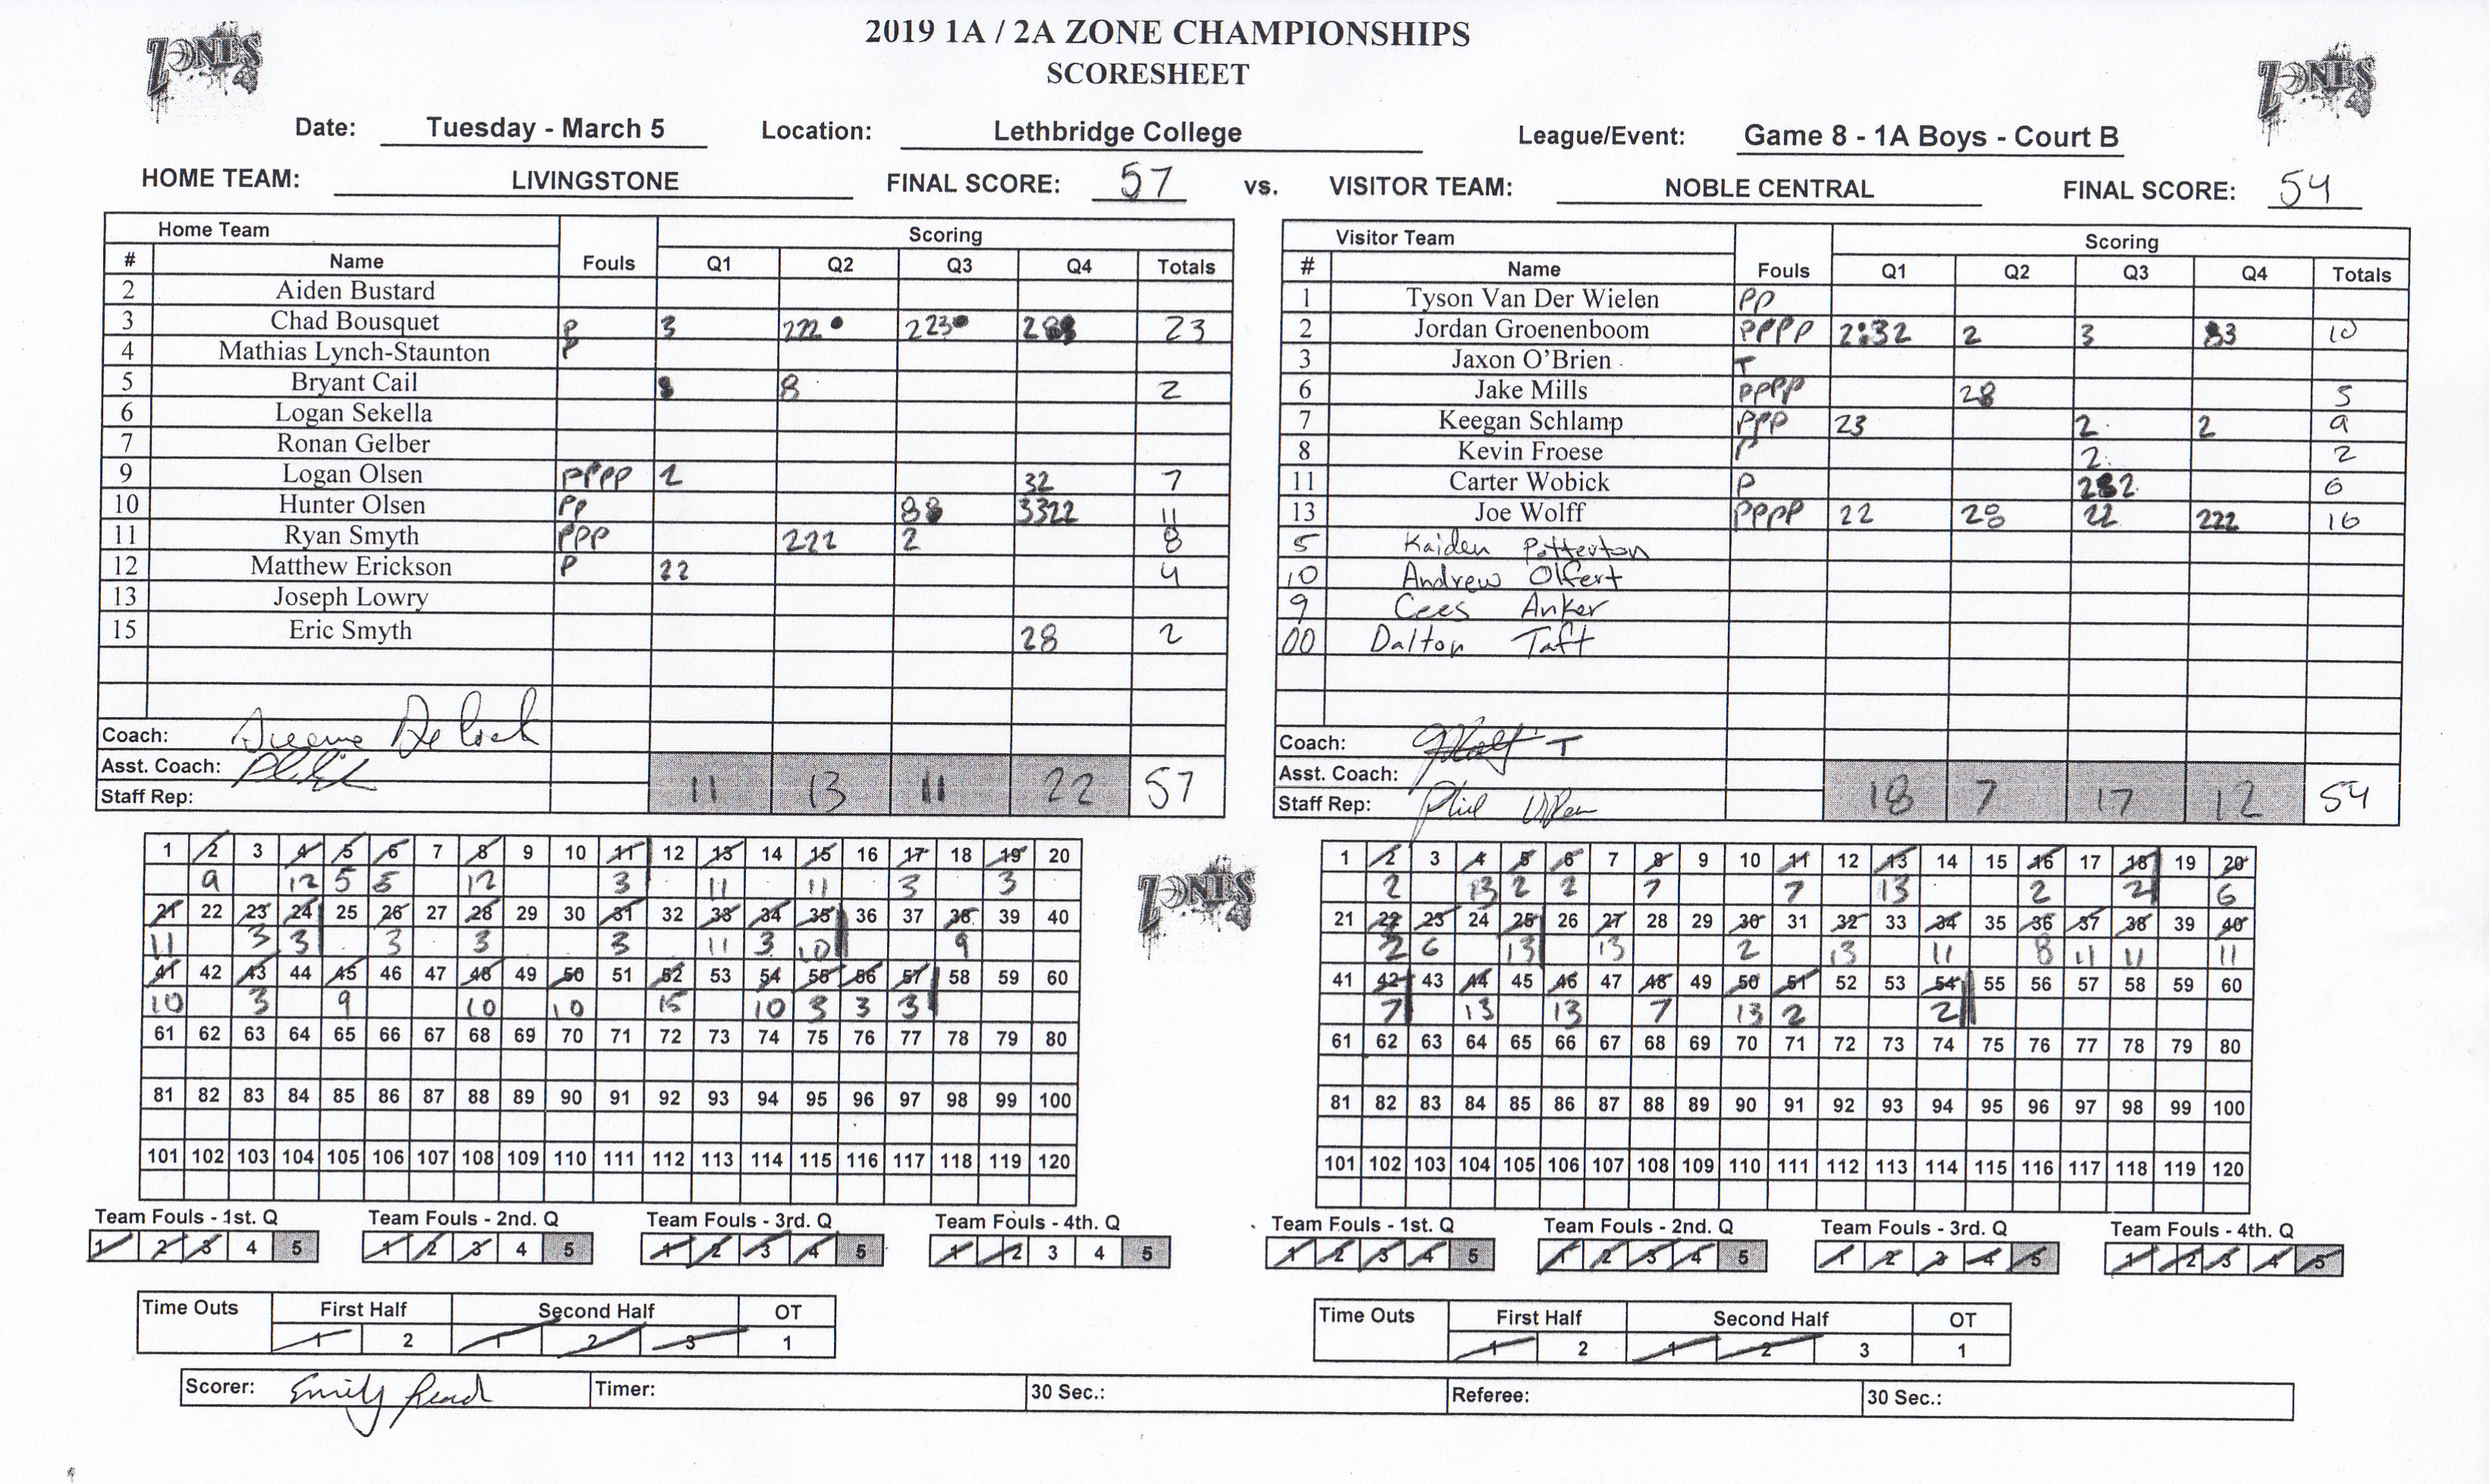 2019 1A / 2A ZONE CHAMPIONSHIPS
SCORESHEET
ZONES ZONES
Date: Tuesday - March 5 Location: Lethbridge College League/Event: Game 8 - 1A Boys - Court B
HOME TEAM: LIVINGSTONE FINAL SCORE: 57 vs. VISITOR TEAM: NOBLE CENTRAL FINAL SCORE: 54
Home Team Fouls Scoring
# Name Q1 Q2 Q3 Q4 Totals
2 Aiden Bustard
3 Chad Bousquet P 3 222 223 2 23
4 Mathias Lynch-Staunton P
5 Bryant Cail 8 2
6 Logan Sekella
7 Ronan Gelber
9 Logan Olsen PPPP 2 32 7
10 Hunter Olsen PP 3322 11
11 Ryan Smyth PPP 222 2 8
12 Matthew Erickson P 22 4
13 Joseph Lowry
15 Eric Smyth 28 2
Coach:
Asst. Coach:
Staff Rep:
11 13 11 22 57
Visitor Team Fouls Scoring
# Name Q1 Q2 Q3 Q4 Totals
1 Tyson Van Der Wielen PP
2 Jordan Groenenboom PPPP 2 32 2 3 3 10
3 Jaxon O’Brien T
6 Jake Mills PPPP 28 5
7 Keegan Schlamp PPP 23 2 2 9
8 Kevin Froese P 2 2
11 Carter Wobick P 2 2 6
13 Joe Wolff PPPP 22 28 22 222 16
5 Kaiden Potterton
10 Andrew Olfert
9 Cees Anker
00 Dalton Taft
Coach: T
Asst. Coach:
Staff Rep: Phil
18 7 17 12 54
1 2 3 4 5 6 7 8 9 10 11 12 13 14 15 16 17 18 19 20
9 12 5 5 12 3 11 11 3 3
21 22 23 24 25 26 27 28 29 30 31 32 33 34 35 36 37 38 39 40
11 3 3 3 3 3 11 3 10 9
41 42 43 44 45 46 47 48 49 50 51 52 53 54 55 56 57 58 59 60
10 3 9 10 10 15 10 3 3 3
61 62 63 64 65 66 67 68 69 70 71 72 73 74 75 76 77 78 79 80
81 82 83 84 85 86 87 88 89 90 91 92 93 94 95 96 97 98 99 100
101 102 103 104 105 106 107 108 109 110 111 112 113 114 115 116 117 118 119 120
ZONES
1 2 3 4 5 6 7 8 9 10 11 12 13 14 15 16 17 18 19 20
2 13 2 2 7 7 13 2 2 6
21 22 23 24 25 26 27 28 29 30 31 32 33 34 35 36 37 38 39 40
2 6 13 13 2 13 11 8 11 11 11
41 42 43 44 45 46 47 48 49 50 51 52 53 54 55 56 57 58 59 60
7 13 13 7 13 2 2
61 62 63 64 65 66 67 68 69 70 71 72 73 74 75 76 77 78 79 80
81 82 83 84 85 86 87 88 89 90 91 92 93 94 95 96 97 98 99 100
101 102 103 104 105 106 107 108 109 110 111 112 113 114 115 116 117 118 119 120
Team Fouls - 1st. Q Team Fouls - 2nd. Q Team Fouls - 3rd. Q Team Fouls - 4th. Q
1 2 3 4 5 1 2 3 4 5 1 2 3 4 5 1 2 3 4 5
Team Fouls - 1st. Q Team Fouls - 2nd. Q Team Fouls - 3rd. Q Team Fouls - 4th. Q
1 2 3 4 5 1 2 3 4 5 1 2 3 4 5 1 2 3 4 5
Time Outs First Half Second Half OT
1 2 1 2 3 1
Time Outs First Half Second Half OT
1 2 1 2 3 1
Scorer: Emily Read Timer: 30 Sec.: Referee: 30 Sec.: